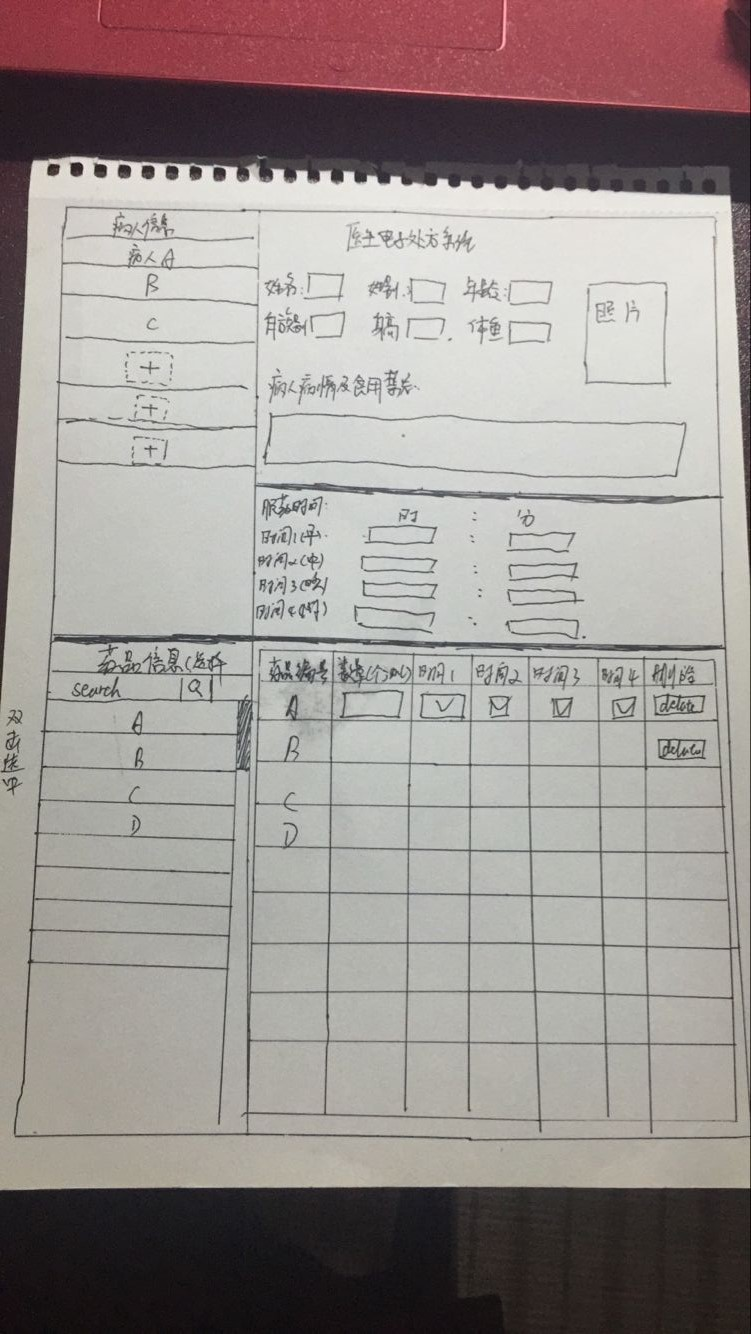 病人信息
病人A
B
C
+
+
+
医生电子处方系统
姓名: 性别: 年龄:
身高 体重
照片
病人病情及食用禁忌:
服药时间: 时 : 分
时间1(早) :
时间2(中) :
时间3(晚) :
时间4 :
药品信息(选择
search Q
A
B
C
D
双击选中
药品编号 数量 时间1 时间2 时间3 时间4 删除
A delete
B delete
C
D